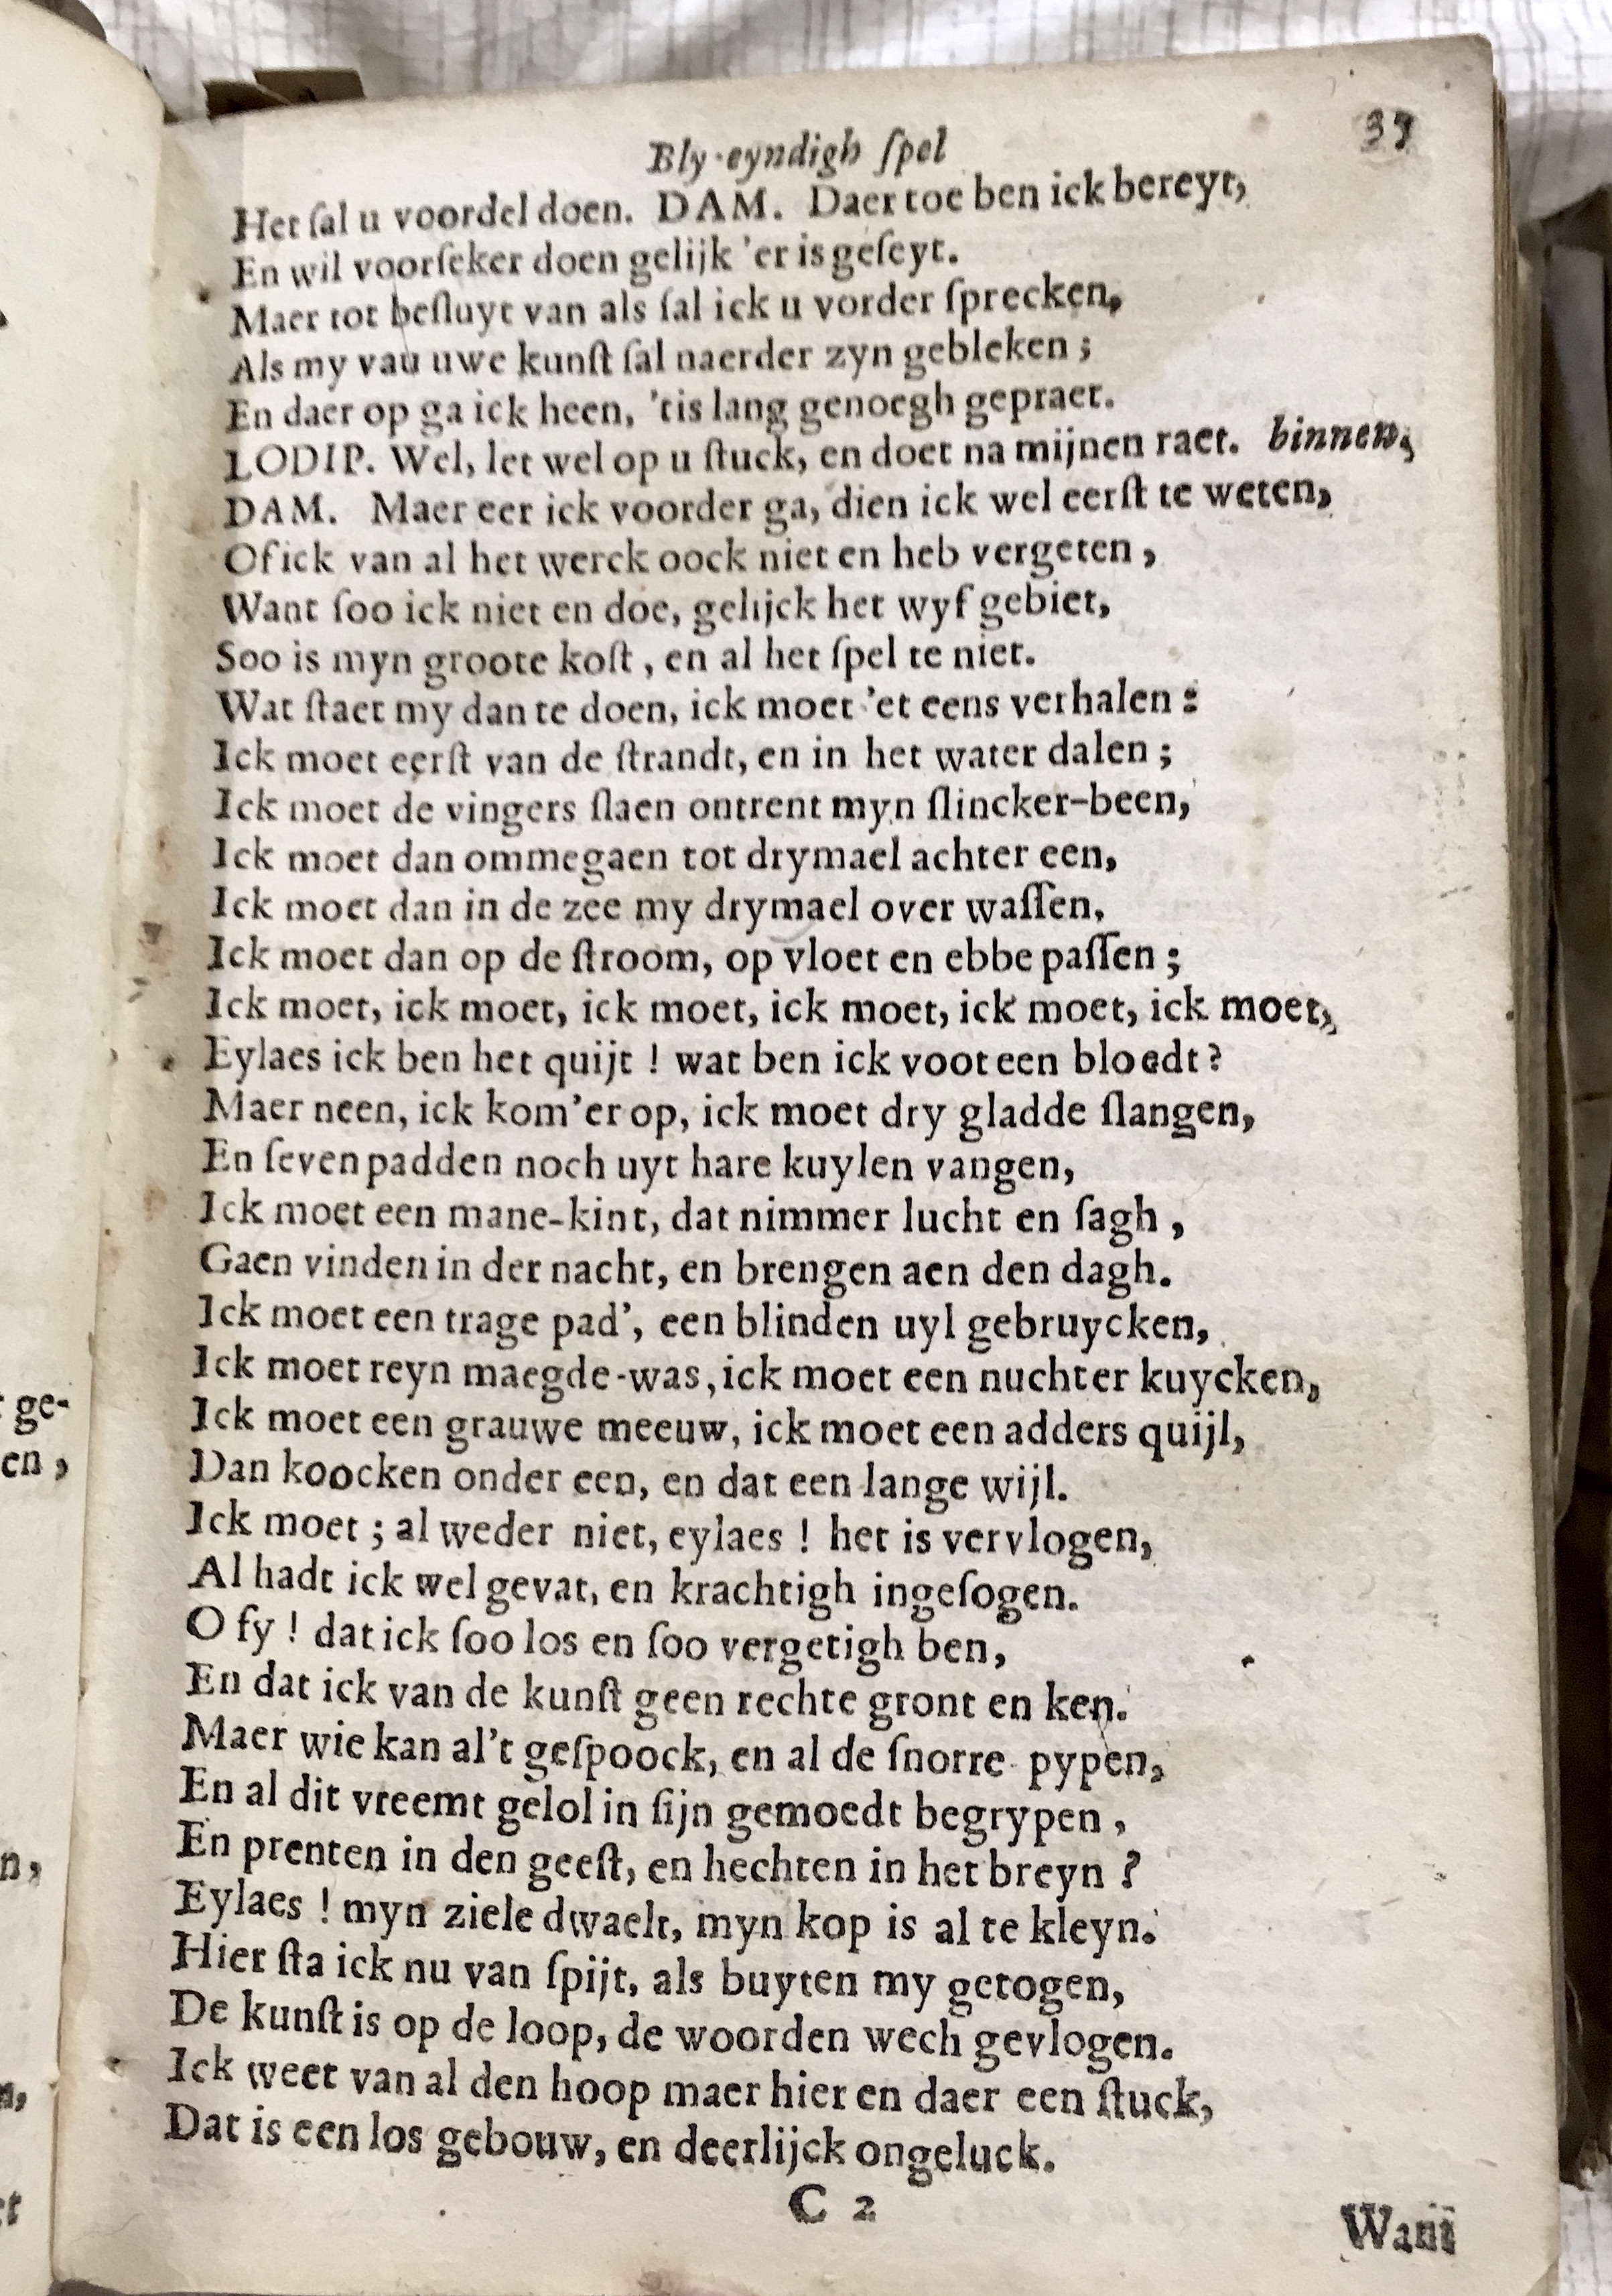 Bly-eyndigh ſpel
Het ſal u voordel doen. DAM. Daer toe ben ick bereyt,
En wil voorſeker doen gelijk 'er is geſeyt.
Maer tot beſluyt van als ſal ick u vorder ſprecken,
Als my vau uwe kunſt ſal naerder zyn gebleken ;
En daer op ga ick heen, 'tis lang genoegh gepraet.
LODIP. Wel, let wel op u ſtuck, en doet na mijnen raet. binnen,
DAM. Maer eer ick voorder ga, dien ick wel eerſt te weten,
Of ick van al het werck oock niet en heb vergeten ,
Want ſoo ick niet en doe, gelijck het wyf gebiet,
Soo is myn groote koſt , en al het ſpel te niet.
Wat ſtaet my dan te doen, ick moet 'et eens verhalen :
Ick moet eerſt van de ſtrandt, en in het water dalen ;
Ick moet de vingers ſlaen ontrent myn ſlincker-been,
Ick moet dan ommegaen tot drymael achter een,
Ick moet dan in de zee my drymael over waſſen,
Ick moet dan op de ſtroom, op vloet en ebbe paſſen ;
Ick moet, ick moet, ick moet, ick moet, ick moet, ick moet,
Eylaes ick ben het quijt ! wat ben ick voot een bloedt?
Maer neen, ick kom'er op, ick moet dry gladde ſlangen,
En ſeven padden noch uyt hare kuylen vangen,
Ick moet een mane-kint, dat nimmer lucht en ſagh ,
Gaen vinden in der nacht, en brengen aen den dagh.
Ick moet een trage pad', een blinden uyl gebruycken,
Ick moet reyn maegde-was, ick moet een nuchter kuycken,
Ick moet een grauwe meeuw, ick moet een adders quijl,
Dan koocken onder een, en dat een lange wijl.
Ick moet ; al weder niet, eylaes ! het is vervlogen,
Al hadt ick wel gevat, en krachtigh ingeſogen.
O fy ! dat ick ſoo los en ſoo vergetigh ben,
En dat ick van de kunſt geen rechte gront en ken.
Maer wie kan al't geſpoock, en al de ſnorre pypen,
En al dit vreemt gelol in ſijn gemoedt begrypen ,
En prenten in den geeſt, en hechten in het breyn ?
Eylaes ! myn ziele dwaelt, myn kop is al te kleyn.
Hier ſta ick nu van ſpijt, als buyten my getogen,
De kunſt is op de loop, de woorden wech gevlogen.
Ick weet van al den hoop maer hier en daer een ſtuck,
Dat is een los gebouw, en deerlijck ongeluck.
C 2
Want